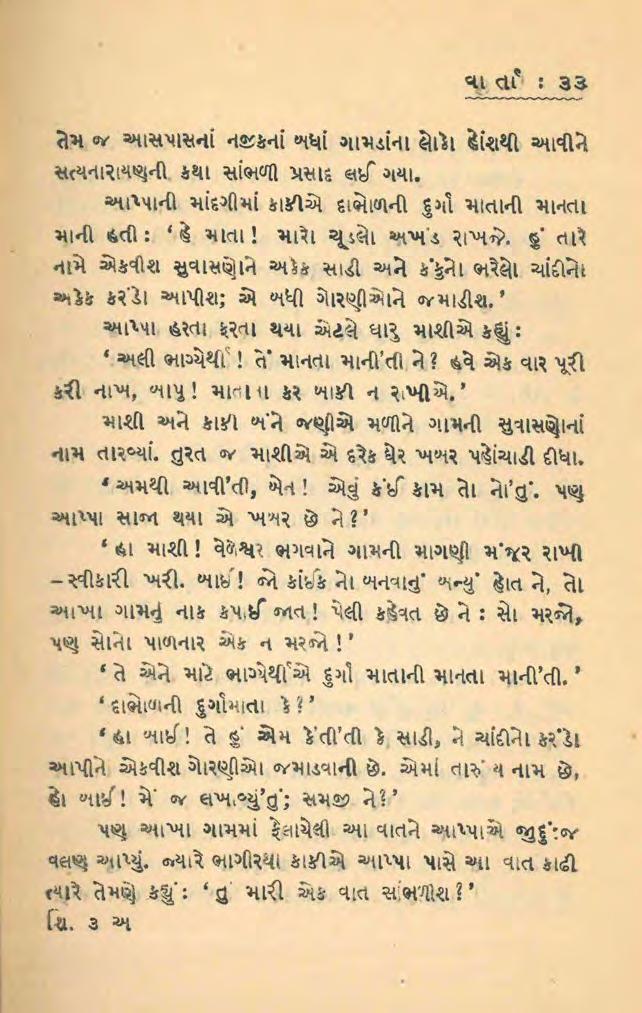 વાર્તા : ૩૩
તેમ જ આસપાસનાં નજીકનાં બધાં ગામડાંના લોકો હોંશથી આવીને
સત્યનારાયણની કથા સાંભળી પ્રસાદ લઈ ગયા.
આપ્પાની માંદગીમાં કાકીએ દાભોળની દુર્ગા માતાની માનતા
માની હતી : ‘હે માતા! મારો ચૂડલો અખંડ રાખજે. હું તારે
નામે એકવીશ સુવાસણોને અકેક સાડી અને કંકુનો ભરેલો ચાંદીનો
અકેક કરંડો આપીશ; એ બધી ગોરણીઓને જમાડીશ.’
આપ્પા હરતા ફરતા થયા એટલે ઘારુ માશીએ કહ્યું :
‘અલી ભાગ્યેર્થી ! તેં માનતા માની’તી ને? હવે એક વાર પૂરી
કરી નાખ, બાપુ! માતાના કર બાકી ન રાખીએ.’
માશી અને કાકી બંને જણીએ મળીને ગામની સુવાસણોનાં
નામ તારવ્યાં. તુરત જ માશીએ એ દરેક ઘેર ખબર પહોંચાડી દીધા.
‘અમથી આવી’તી, બેન! એવું કંઈ કામ તો નો’તું. પણ
આપ્પા સાજા થયા એ ખબર છે ને?’
‘હા માશી! વેળેશ્વર ભગવાને ગામની માગણી મંજૂર રાખી
–સ્વીકારી ખરી. બાઈ! જો કાંઈક નો બનવાનું બન્યું હોત ને, તો
આખા ગામનું નાક કપાઈ જાત! પેલી કહેવત છે ને : સો મરજો,
પણ સોનો પાળનાર એક ન મરજો!’
‘તે એને માટે ભાગ્યેર્થીએ દુર્ગા માતાની માનતા માની’તી.’
‘દાભોળની દુર્ગામાતા કે?’
‘હા બાઈ! તે હું એમ કે’તી’તી કે સાડી, ને ચાંદીનો કરંડો
આપીને એકવીશ ગોરણીઓ જમાડવાની છે. એમાં તારું ય નામ છે,
હો બાઈ! મેં જ લખાવ્યું’તું; સમજી ને?’
પણ આખા ગામમાં ફેલાયેલી આ વાતને આપ્પાએ જુદુંજ
વલણ આપ્યું. જ્યારે ભાગીરથી કાકીએ આપ્પા પાસે આ વાત કાઢી
ત્યારે તેમણે કહ્યું : ‘તું મારી એક વાત સાંભળીશ?’
શિ. ૩ અ